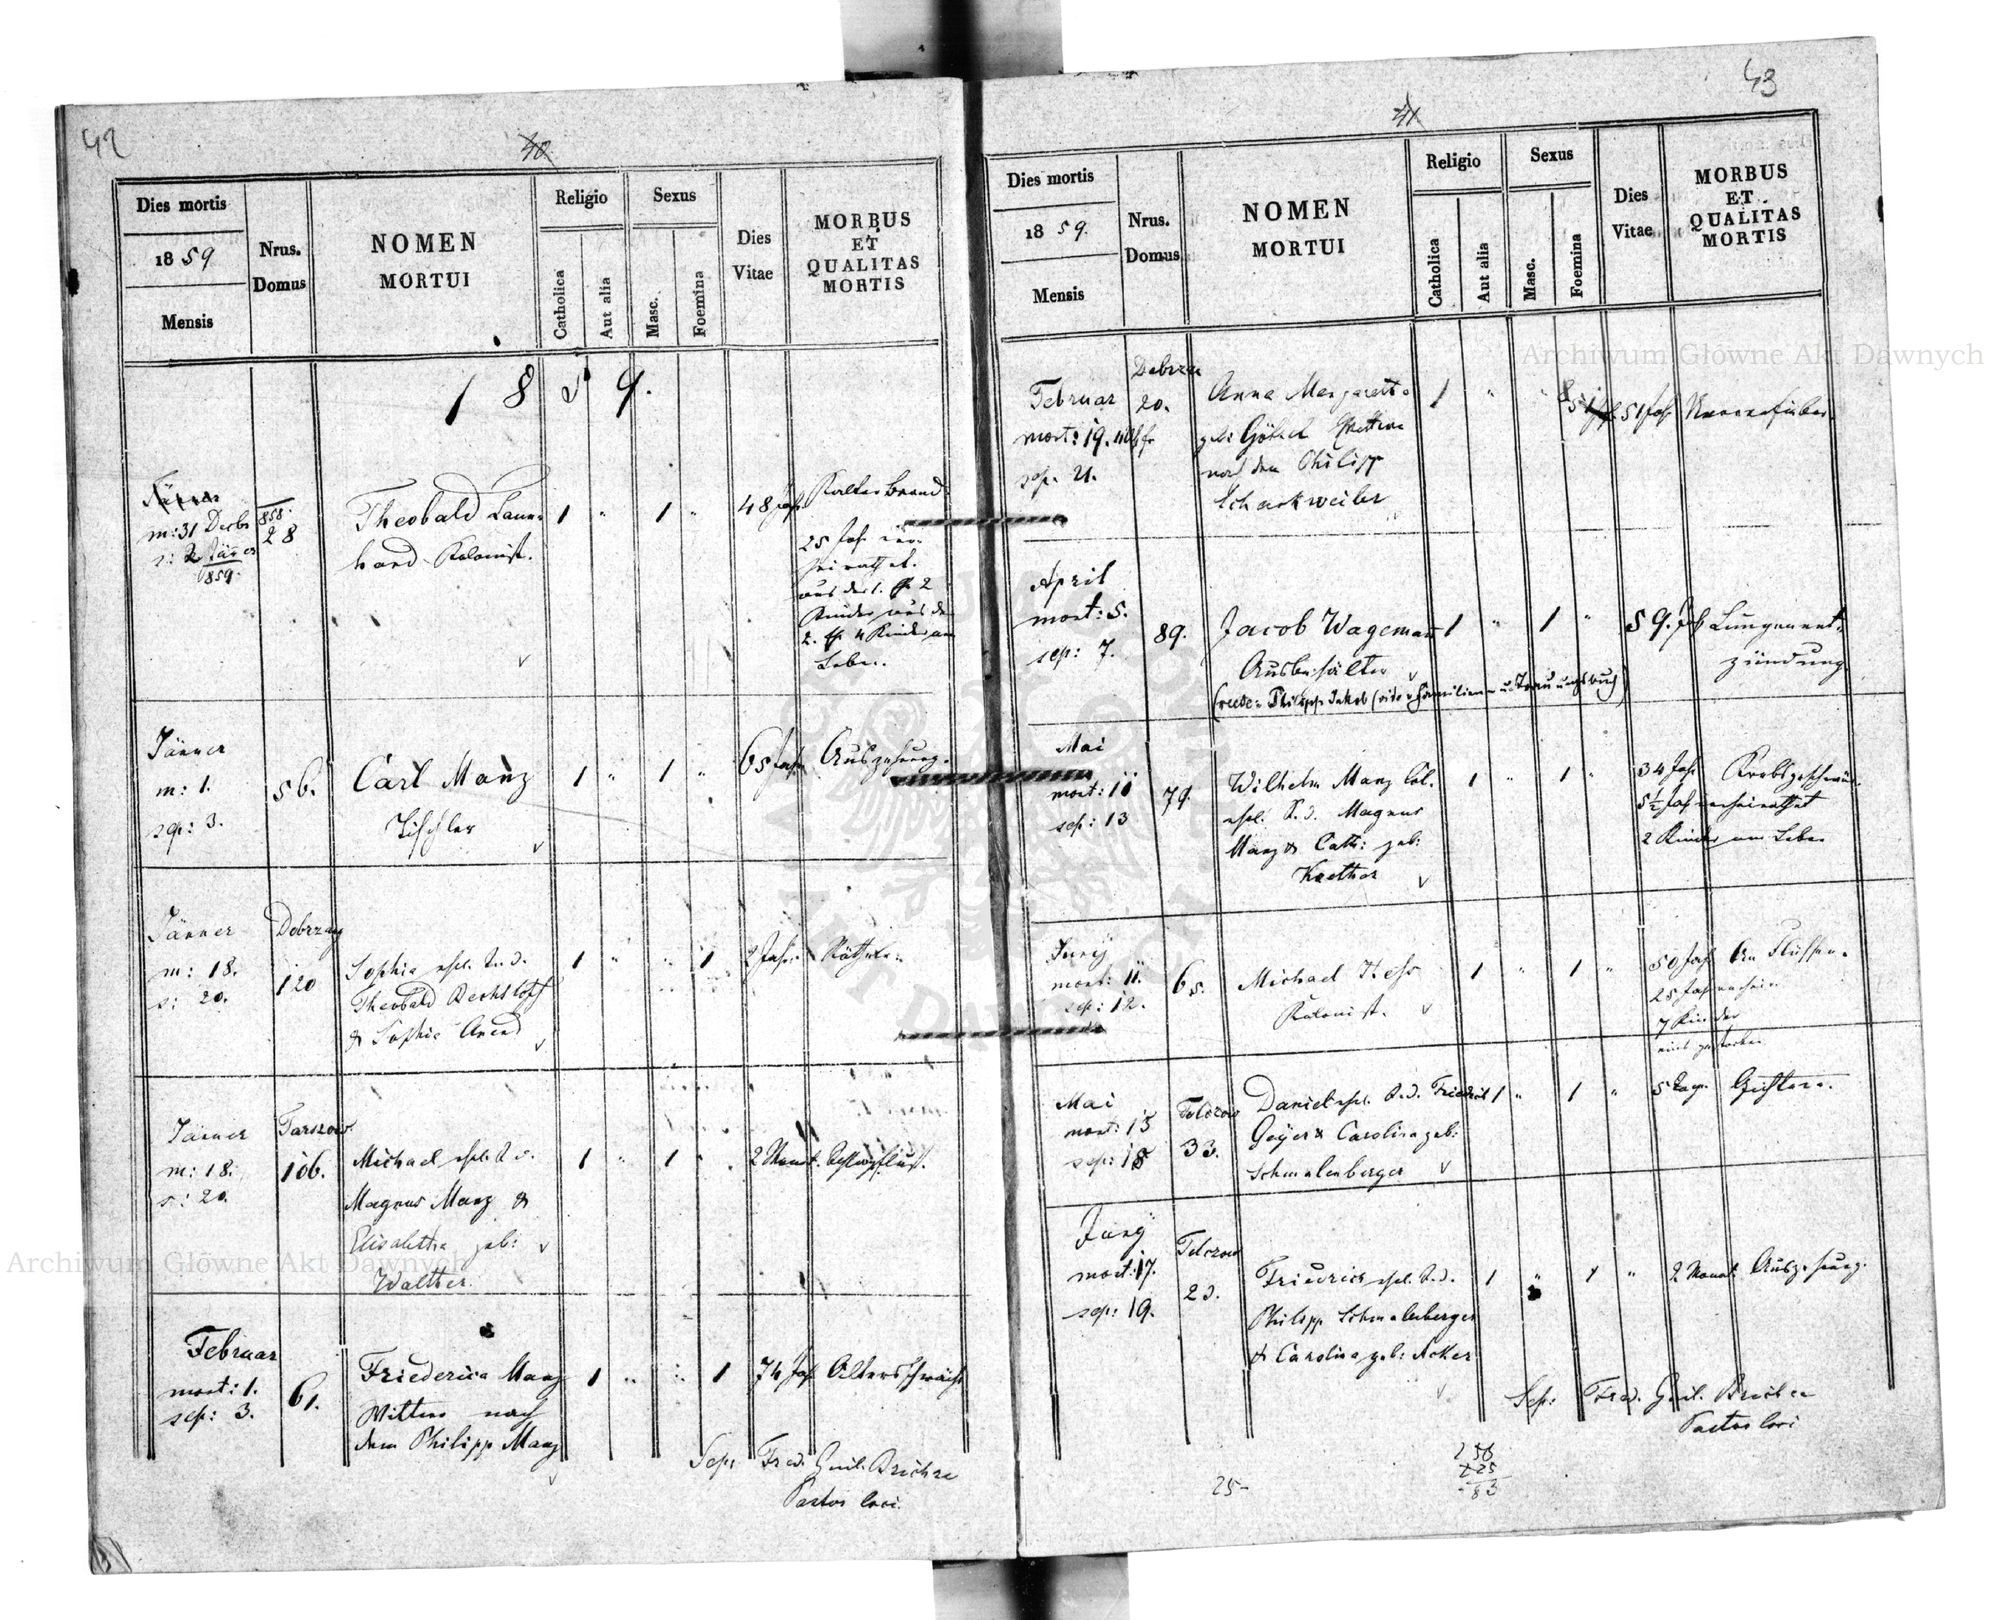 42
40
Dies mortis
1859
Mensis
Nrus.
Domus
NOMEN
MORTUI
Religio
Catholica
Aut alia
Sexus
Masc.
Foemina
Dies
Vitae
MORBUS
ET
QUALITAS
MORTIS
1859.
Jänner
m: 31 Decbr 858.
s: 2 Jänner
859.
28
Theobald Laun-
hard Kolonist.
1 " 1 "
48 Jahr
Kalter Brand
25 Jahr ver-
heirathet.
aus der 1. Eh 2
Kinder aus der
2. Eh 4 Kinder am
Leben.
Jänner
m: 1.
sep: 3.
56.
Carl Manz
Tischler
1 " 1 "
65 Jahr
Auszehrung.
Jänner
m: 18.
s: 20.
Dobrzan
120
Sophie ehl. T. d.
Theobald Bechtloff
& Sophie Arend
1 " " 1
2 Jahr
Rötheln
Jänner
m: 18.
s: 20.
Tarszow.
106.
Michael ehl. S. d.
Magnus Manz &
Elisabetha geb:
Walther.
1 " 1 "
2 Monat.
Februar
mort: 1.
sep: 3.
61.
Friederica Manz
Wittwe nach
dem Philipp Manz
1 " " 1
74 Jahr
Altersschwäche
Sep: Fred. Guil.
Pastor loci.
43
41
Dies mortis
1859.
Mensis
Nrus.
Domus
NOMEN
MORTUI
Religio
Catholica
Aut alia
Sexus
Masc.
Foemina
Dies
Vitae
MORBUS
ET
QUALITAS
MORTIS
Februar
mort: 19.
sep. 21.
Dobrzan
20.
Anna Margaretha
geb: Göbel Wittwe
nach dem Philipp
Scharkweiler
1 "
51 Jahr
Nervenfieber.
April
mort: 5.
sep: 7.
89.
Jacob Wagemann
Ausbehälter
(recte: Philipp Jakob (vide: Familien- u. Trauungsbuch)
1 " 1 "
59. Jahr
Lungenent-
zündung
Mai
mort: 11
sep: 13
79.
Wilhelm Manz Col.
ehl. S. d. Magnus
Manz & Cath: geb:
Koethar
1 " 1 "
34 Jahr
Krebsgeschwür
5½ Jahr verheirathet
2 Kinder am Leben
Juny
mort: 11.
sep: 12.
65.
Michael Hess
Kolonist.
1 " 1 "
50 Jahr
25 Jahr verheir.
7 Kinder
eins gestorben
Mai
mort: 15
sep: 18
Tolczow
33.
Daniel ehl. S. d. Friedrich
Geyer & Carolina geb:
Schmalenberger
1 " 1 "
5 Tage
Gichter.
Juny
mort: 17.
sep: 19.
Tolczow
23.
Friedrich ehl. S. d.
Philipp Schmalenberger
& Carolina geb: Acker
1 " 1 "
2 Monat
Auszehrung.
Sep: Fred. Guil.
Pastor loci
25-
Archiwum Główne Akt Dawnych
Archiwum Główne Akt Dawnych